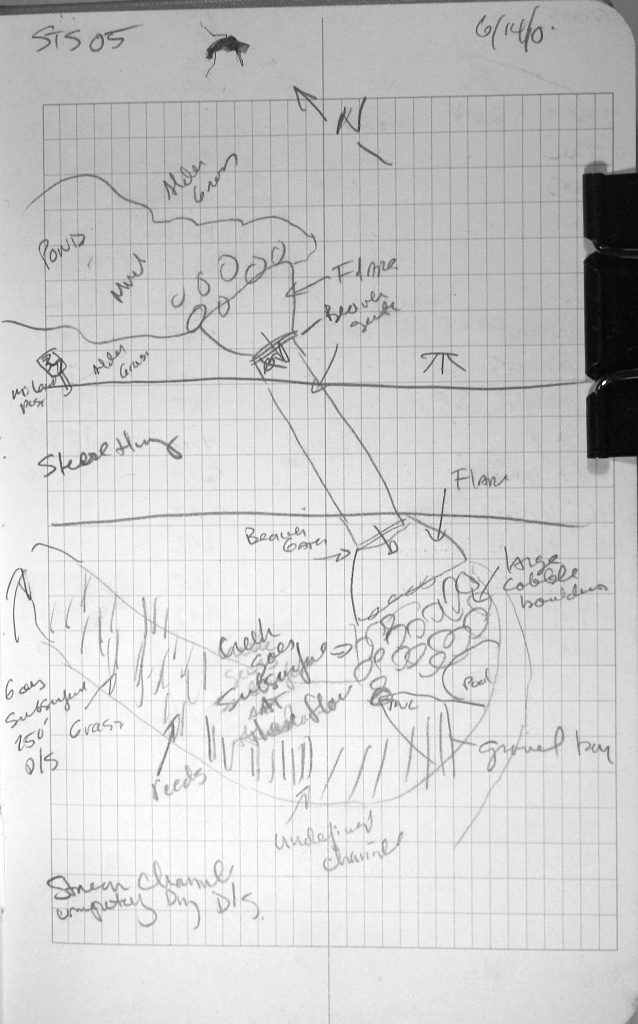 STS 05
6/14/0
N
Alder
Grass
POND
Mud
FLARE
Beaver
Alder
Grass
Mile
post
FLARE
Beaver
Gates
large
cobble
boulders
Creek
goes
Subsurface
At
Pool
Goes
Subsurface
250'
D/S
Grass
reeds
gravel bar
undefined
channel
Stream Channel
completely Dry D/S.